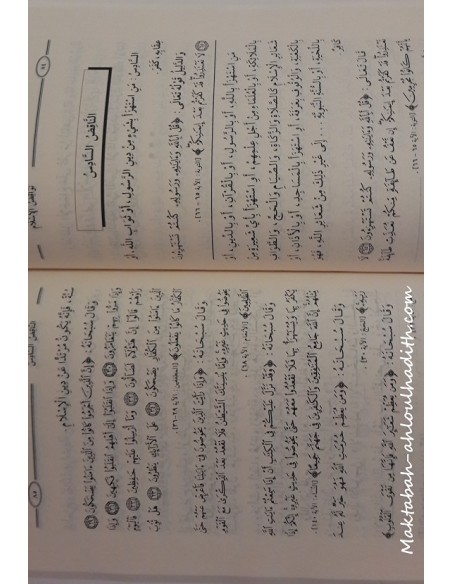 نواقض الإسلام
٨٤
النَّاقِضُ السَّادِسُ
السَّادِسُ: مَنِ اسْتَهْزَأَ بِشَيْءٍ مِنْ دِينِ الرَّسُولِ، أَوْ ثَوَابِ اللهِ، أَوْ
عِقَابِهِ، كَفَرَ.
وَالدَّلِيلُ قَوْلُهُ تَعَالَى: ﴿قُلْ أَبِاللَّهِ وَآيَاتِهِ وَرَسُولِهِ كُنْتُمْ تَسْتَهْزِئُونَ
لَا تَعْتَذِرُوا قَدْ كَفَرْتُمْ بَعْدَ إِيمَانِكُمْ﴾ [التوبة: الآية ٦٥-٦٦].
مَنِ اسْتَهْزَأَ بِاللهِ، أَوْ بِالرَّسُولِ، أَوْ بِالْقُرْآنِ، أَوْ بِالدِّينِ، أَوْ
بِالْمَلَائِكَةِ، أَوْ بِالْعُلَمَاءِ مِنْ أَجْلِ عِلْمِهِمْ، أَوِ اسْتَهْزَأَ بِأَيِّ شَعِيرَةٍ مِنْ
شَعَائِرِ الْإِسْلَامِ كَالصَّلَاةِ وَالزَّكَاةِ، وَالصِّيَامِ وَالْحَجِّ، وَالطَّوَافِ
بِالْكَعْبَةِ، وَالْوُقُوفِ بِعَرَفَةَ، أَوِ اسْتَهْزَأَ بِالْمَسَاجِدِ، أَوْ بِالْأَذَانِ، أَوْ
بِاللِّحْيَةِ، أَوْ بِالسُّنَّةِ النَّبَوِيَّةِ ... إِلَى غَيْرِ ذَلِكَ مِنْ شَعَائِرِ اللهِ، فَهُوَ
كَافِرٌ.
قَالَ تَعَالَى: ﴿قُلْ أَبِاللَّهِ وَآيَاتِهِ وَرَسُولِهِ كُنْتُمْ تَسْتَهْزِئُونَ لَا
تَعْتَذِرُوا قَدْ كَفَرْتُمْ بَعْدَ إِيمَانِكُمْ إِنْ نَعْفُ عَنْ طَائِفَةٍ مِنْكُمْ نُعَذِّبْ طَائِفَةً
بِأَنَّهُمْ كَانُوا مُجْرِمِينَ﴾
الناقض السادس
٨٥
فَإِنَّهُ يَكُونُ مُرْتَدًّا عَنْ دِينِ الْإِسْلَامِ.
وَقَالَ سُبْحَانَهُ: ﴿إِنَّ الَّذِينَ أَجْرَمُوا كَانُوا مِنَ الَّذِينَ آمَنُوا يَضْحَكُونَ
وَإِذَا مَرُّوا بِهِمْ يَتَغَامَزُونَ وَإِذَا انْقَلَبُوا إِلَى أَهْلِهِمُ انْقَلَبُوا فَكِهِينَ وَإِذَا
رَأَوْهُمْ قَالُوا إِنَّ هَؤُلَاءِ لَضَالُّونَ وَمَا أُرْسِلُوا عَلَيْهِمْ حَافِظِينَ فَالْيَوْمَ
الَّذِينَ آمَنُوا مِنَ الْكُفَّارِ يَضْحَكُونَ عَلَى الْأَرَائِكِ يَنْظُرُونَ هَلْ ثُوِّبَ
الْكُفَّارُ مَا كَانُوا يَفْعَلُونَ﴾ [المطففين: ٢٩-٣٦].
وَقَالَ سُبْحَانَهُ: ﴿وَإِذَا رَأَيْتَ الَّذِينَ يَخُوضُونَ فِي آيَاتِنَا فَأَعْرِضْ عَنْهُمْ حَتَّى
يَخُوضُوا فِي حَدِيثٍ غَيْرِهِ وَإِمَّا يُنْسِيَنَّكَ الشَّيْطَانُ فَلَا تَقْعُدْ بَعْدَ الذِّكْرَى مَعَ الْقَوْمِ
الظَّالِمِينَ﴾ [الأنعام: ٦٨].
وَقَالَ سُبْحَانَهُ: ﴿وَقَدْ نَزَّلَ عَلَيْكُمْ فِي الْكِتَابِ أَنْ إِذَا سَمِعْتُمْ آيَاتِ اللَّهِ
يُكْفَرُ بِهَا وَيُسْتَهْزَأُ بِهَا فَلَا تَقْعُدُوا مَعَهُمْ حَتَّى يَخُوضُوا فِي حَدِيثٍ غَيْرِهِ إِنَّكُمْ إِذًا
مِثْلُهُمْ إِنَّ اللَّهَ جَامِعُ الْمُنَافِقِينَ وَالْكَافِرِينَ فِي جَهَنَّمَ جَمِيعًا﴾ [النساء: الآية ١٤٠].
وَقَالَ سُبْحَانَهُ: ﴿وَمَنْ يُعَظِّمْ حُرُمَاتِ اللَّهِ فَهُوَ خَيْرٌ لَهُ عِنْدَ
رَبِّهِ﴾ [الحج: الآية ٣٠].
وَقَالَ سُبْحَانَهُ: ﴿وَمَنْ يُعَظِّمْ شَعَائِرَ اللَّهِ فَإِنَّهَا مِنْ تَقْوَى الْقُلُوبِ﴾
Maktabah-ahloulhadith.com